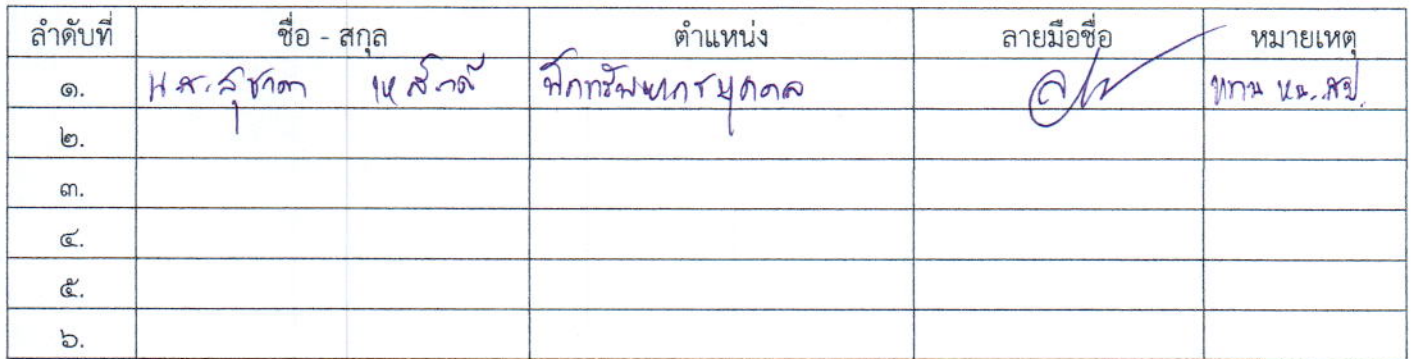 ลำดับที่ ชื่อ - สกุล ตำแหน่ง ลายมือชื่อ หมายเหตุ
๑. น.ส. สุชาดา นักทรัพยากรบุคคล แทน
๒.
๓.
๔.
๕.
๖.